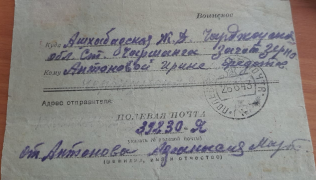 Воинское
Куда Ашхабадская Ж.Д. Чарджоуская
обл. Ст. Чаршанга Заготзерно
Кому Антоновой Ирине
Адрес отправителя
ПОЛЕВАЯ ПОЧТА
39230-Я
от Антонова
(фамилия, имя и отчество)